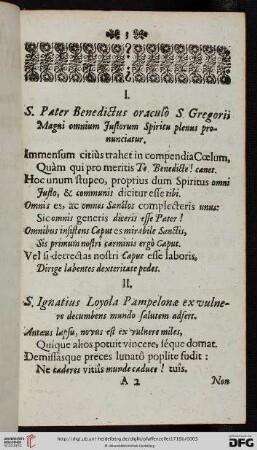 3
I.
S. Pater Benedictus oraculo S Gregorii
Magni omnium Justorum Spiritu plenus pro-
nunciatur,
Immensum citiùs trahet in compendia Cœlum,
Quàm qui pro meritis Te, Benedicte! canet.
Hoc unum stupeo, proprius dum Spiritus omni
Justo, & communis dicitur esse tibi.
Omnis es, ac omnes Sanctos complecteris unus:
Sic omnis generis diceris esse Pater!
Omnibus insistens Caput es mirabile Sanctis,
Sis primum nostri carminis ergò Caput.
Vel si detrectas nostri Caput esse laboris,
Dirige labentes dexteritate pedes.
II.
S. Ignatius Loyola Pampelonæ ex vulne-
re decumbens mundo salutem adfert.
Antæus lapsu, novus est ex vulnere miles,
Quique alios potuit vincere, séque domat.
Demissasque preces lunatô poplite fudit:
Ne caderes vitiis munde caduce! tuis.
A 2 Non
http://digi.ub.uni-heidelberg.de/diglit/pfaffenzeller1718b/0003
© Universitätsbibliothek Heidelberg
gefördert durch die
DFG